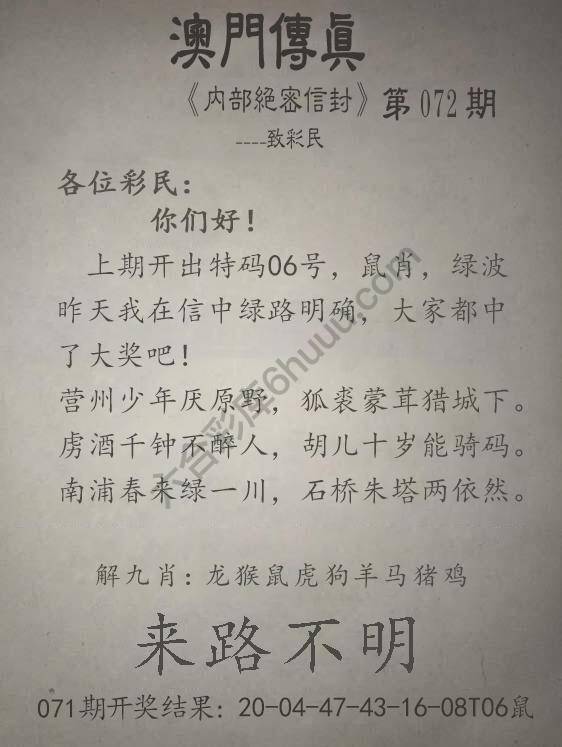 澳門傳眞
《内部絕密信封》第072期
----致彩民
各位彩民：
你们好！
上期开出特码06号，鼠肖，绿波
昨天我在信中绿路明确，大家都中
了大奖吧！
营州少年厌原野，狐裘蒙茸猎城下。
虏酒千钟不醉人，胡儿十岁能骑码。
南浦春来绿一川，石桥朱塔两依然。
解九肖：龙猴鼠虎狗羊马猪鸡
来路不明
071期开奖结果：20-04-47-43-16-08T06鼠
六合彩库6huuu.com